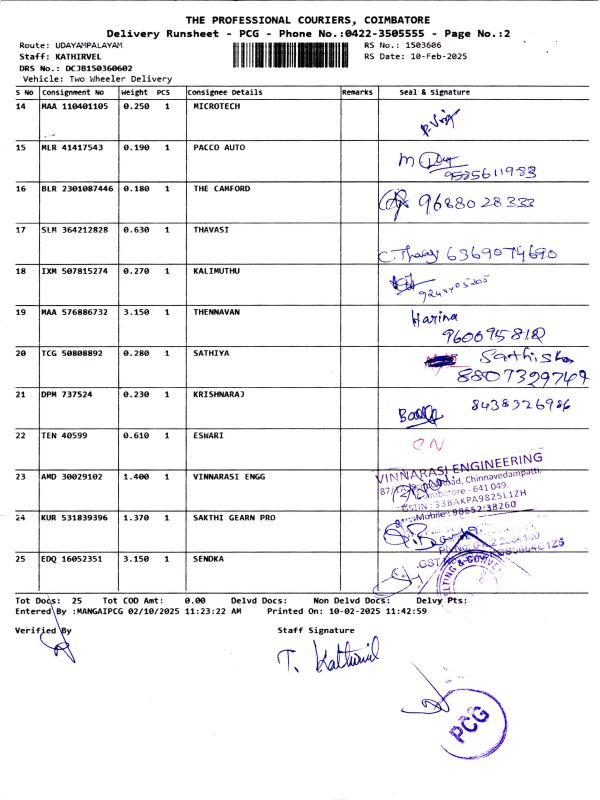 THE PROFESSIONAL COURIERS, COIMBATORE
Delivery Runsheet - PCG - Phone No.:0422-3505555 - Page No.:2
Route: UDAYAMPALAYAM RS No.: 1503606
Staff: KATHIRVEL RS Date: 10-Feb-2025
DRS No.: DCJB150360602
Vehicle: Two Wheeler Delivery
S No Consignment No Weight PCS Consignee Details Remarks Seal & Signature
14 MAA 110401105 0.250 1 MICROTECH
15 MLR 41417543 0.190 1 PACCO AUTO
9585611983
16 BLR 2301087446 0.180 1 THE CAMFORD 9688028333
17 SLM 364212828 0.630 1 THAVASI 6369074690
18 IXM 507815274 0.270 1 KALIMUTHU
19 MAA 576886732 3.150 1 THENNAVAN Harina
20 TCG 50808892 0.280 1 SATHIYA
21 DPM 737524 0.230 1 KRISHNARAJ 8438326986
22 TEN 40599 0.610 1 ESWARI CN
VINNARASI ENGINEERING
23 AMD 30029102 1.400 1 VINNARASI ENGG
Chinnavedampatti,
641 049.
33BAKPA9825L1ZH
24 KUR 531839396 1.370 1 SAKTHI GEARN PRO
Mobile: 98652 38260
25 EDQ 16052351 3.150 1 SENDKA
Tot Docs: 25 Tot COD Amt: 0.00 Delvd Docs: Non Delvd Docs: Delvy Pts:
Entered By :MANGAIPCG 02/10/2025 11:23:22 AM Printed On: 10-02-2025 11:42:59
Verified By Staff Signature
T. Kathirvel
PCG